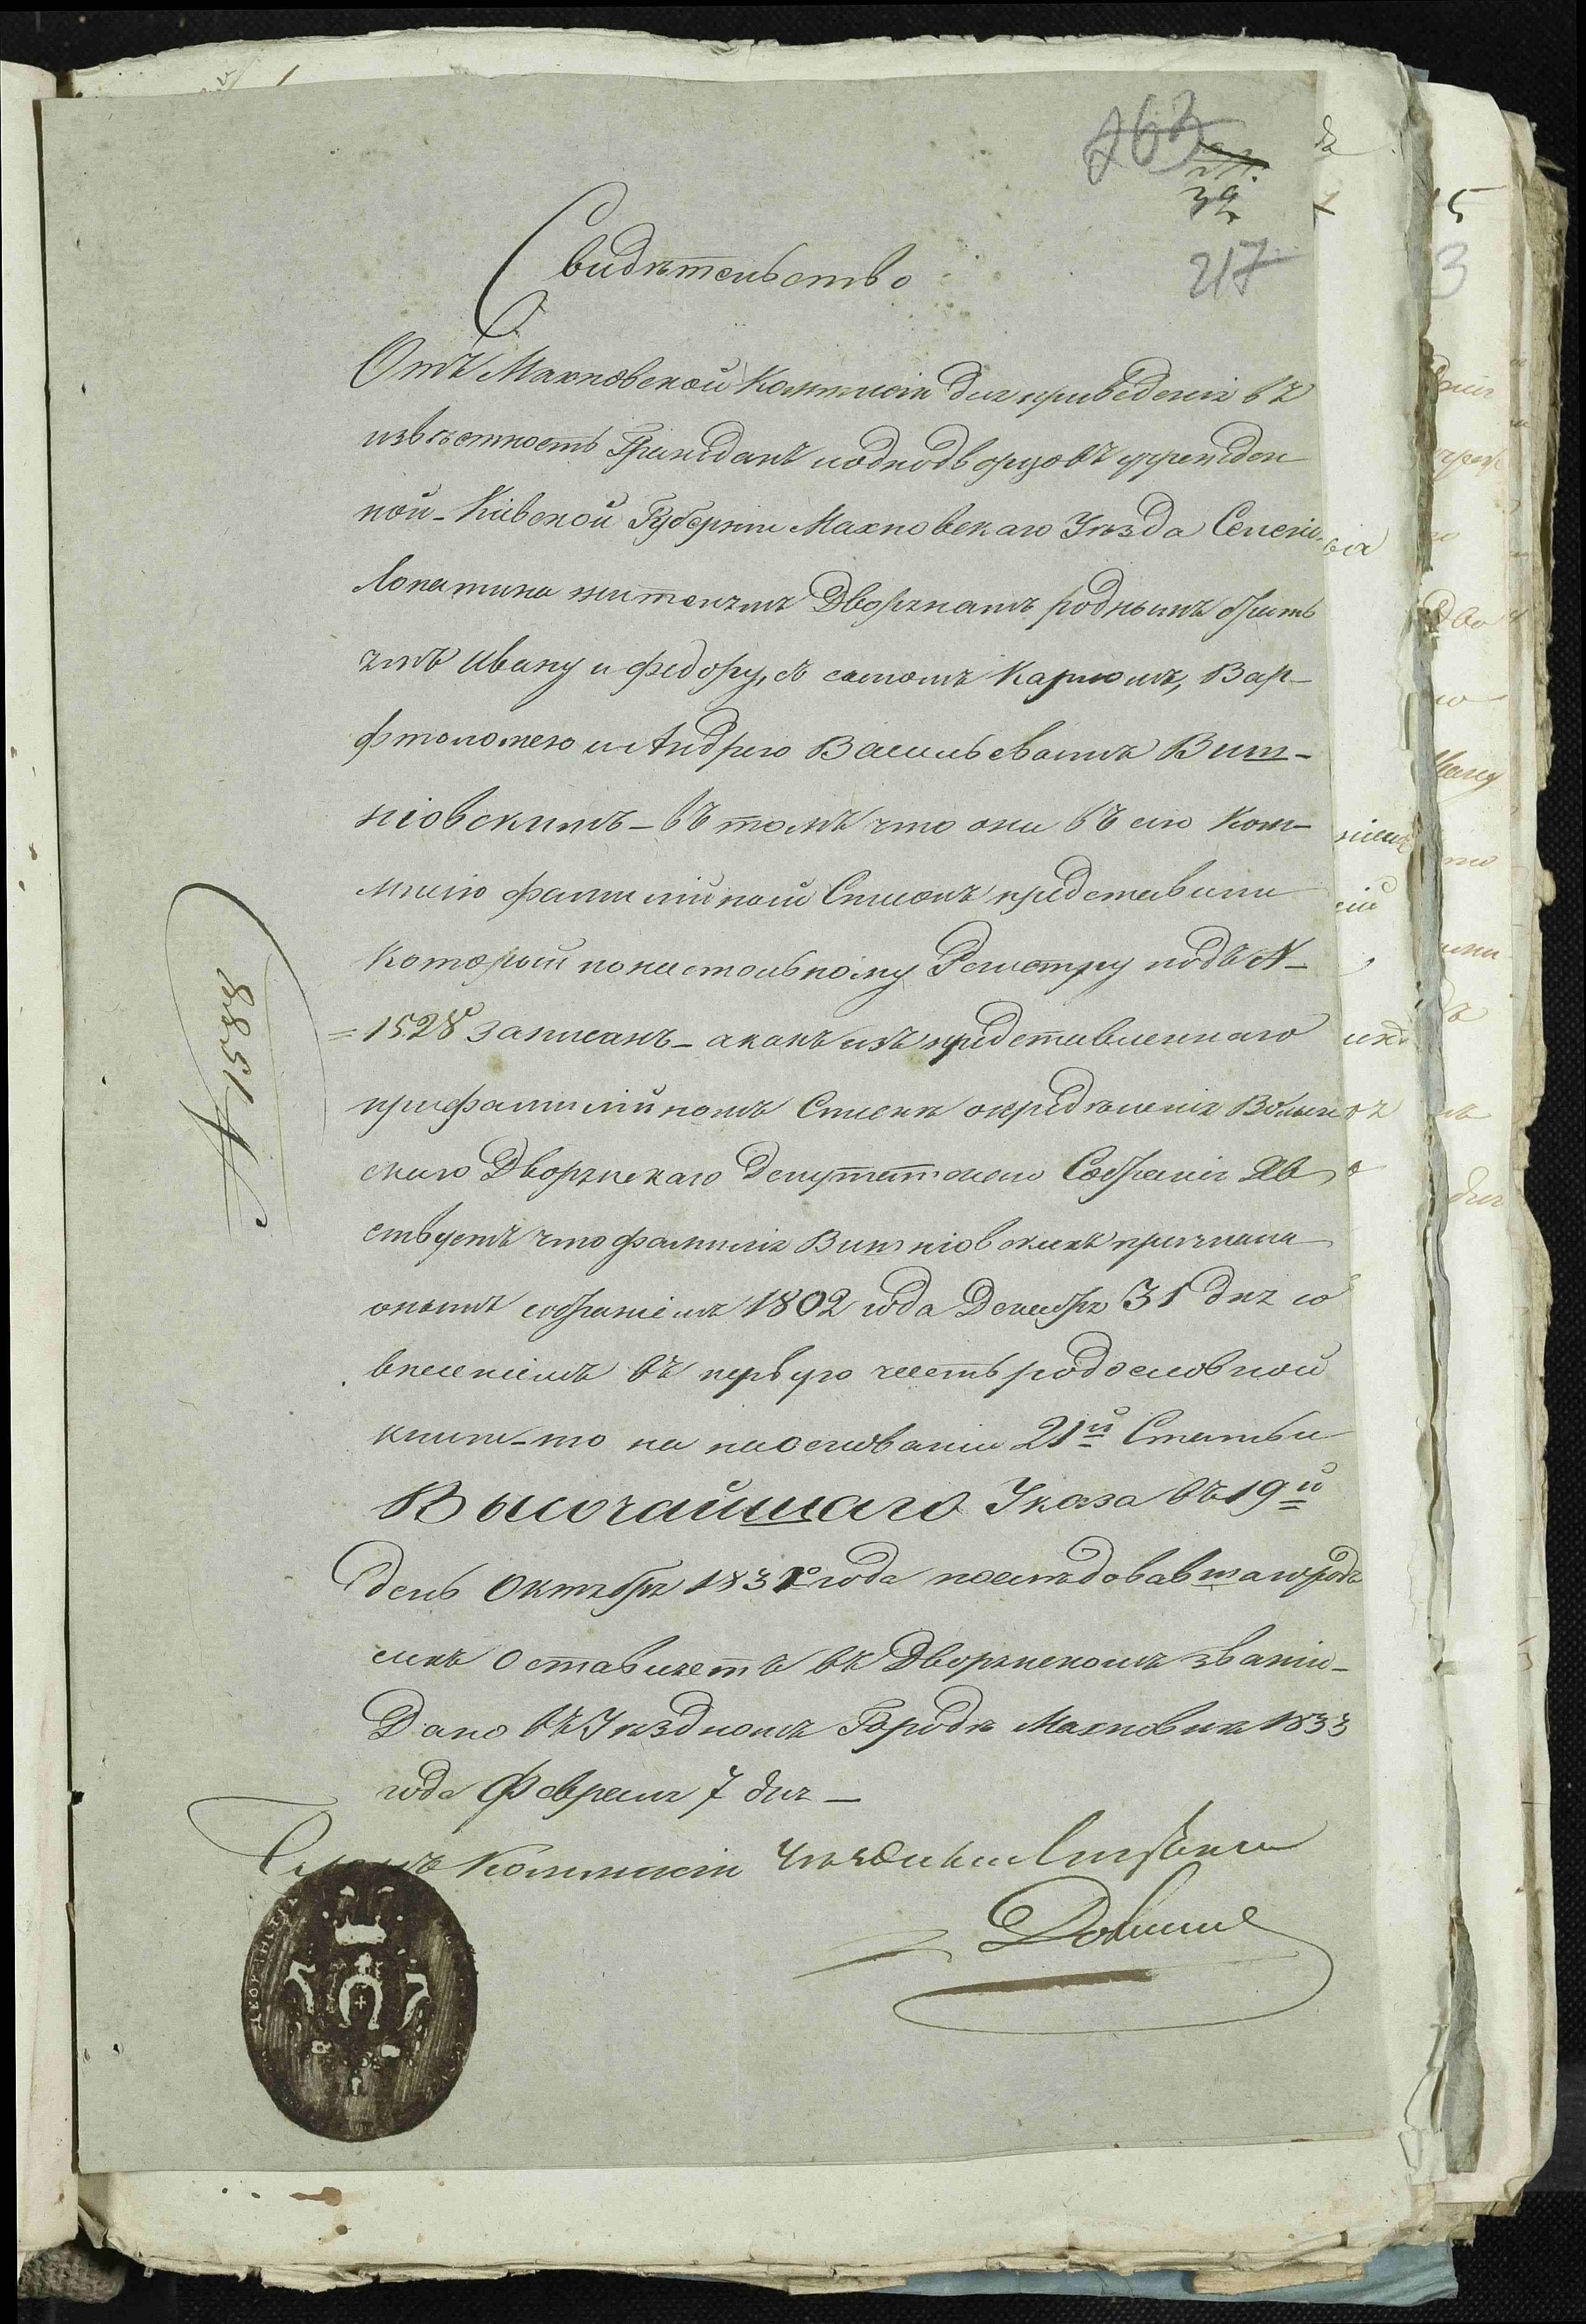 263
39
217
Свидѣтельство
Отъ Махновской Коммисіи для приведенія въ
извѣстность Гражданъ и однодворцовъ учрежден
ной – Кіевской Губерніи Махновскаго Уѣзда Селенія
Лопатина жителямъ Дворянамъ роднымъ брать
ямъ Ивану и Федору, съ сыномъ Карломъ, Вар-
фтоломею и Андрею Васильевымъ Виш-
ніовскимъ – въ томъ что они въ сію Ком-
мисію фамилійной Списокъ представили
который по настольному Регистру подъ N–
= 1528 записанъ – а какъ изъ представленнаго
при фамилійномъ Спискѣ опредѣленія Волын
скаго Дворянскаго Депутатскаго Собранія Яв
ствуетъ что фамилія Вишніовскихъ признана
онымъ собраніемъ 1802 года Декабря 31 дня со
внесеніемъ въ первую часть родословной
книги – то на основаніи 21й Статьи
Высочайшаго Указа въ 19й
день Октября 1831го года послѣдовавшаго родъ
сихъ оставляетъ въ Дворянскомъ званіи –
Дано въ Уѣздномъ Городѣ Махновкѣ 1833
года Февраля 7 дня –
Членъ Коммисіи
N 1588